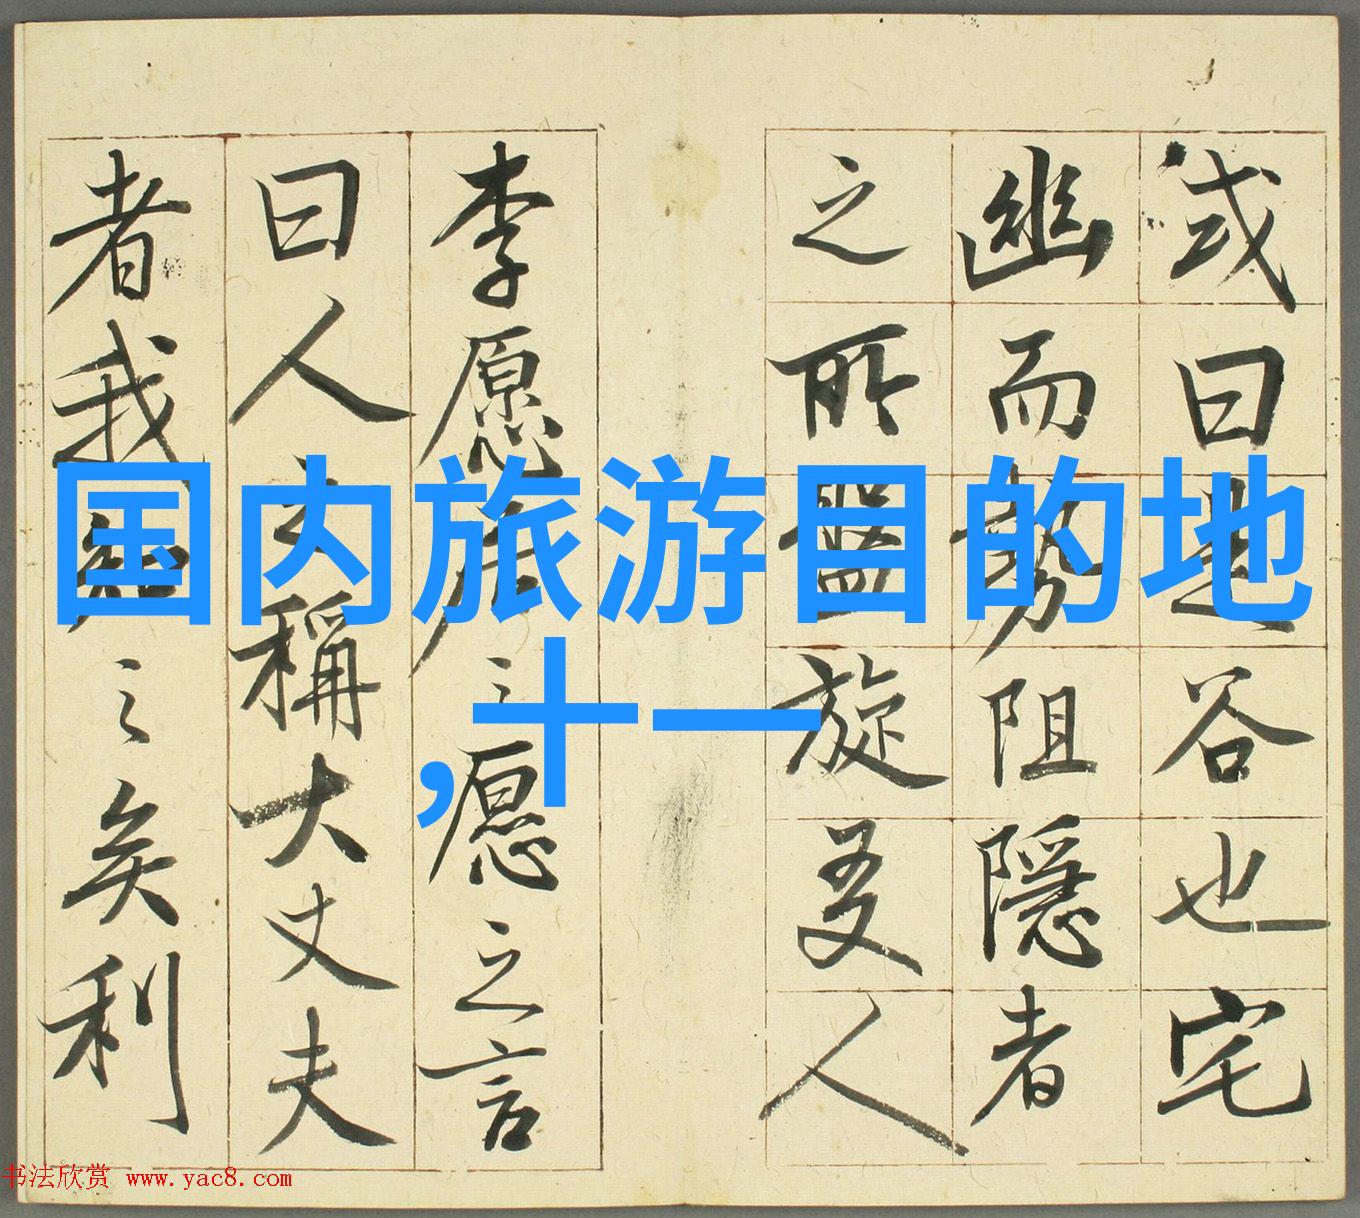 或曰是谷也宅
幽而勢阻隱者
之所盤旋友人
李愿居之愿之言
曰人之稱大丈夫
者我知之矣利
国内旅游目的地
,十一
书法欣赏 www.yac8.com